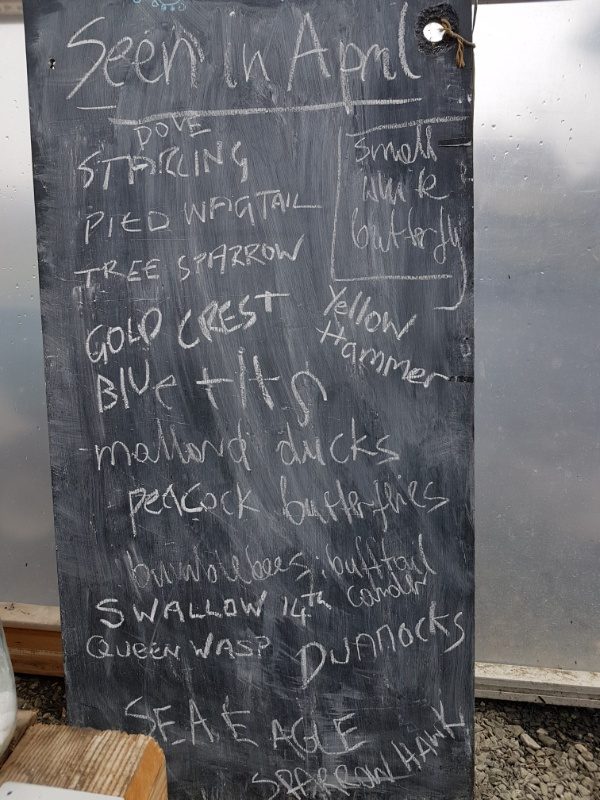 Seen in April
DOVE
STARLING
PIED WAGTAIL
TREE SPARROW
GOLD CREST
BLUe tits
mallard ducks
PEACOCK butterflies
bumblebees: bufftail
SWALLOW 14th
QUEEN WASP
DUNNOCKS
SEA EAGLE
SPARROW HAWK
small
white
butterfly
Yellow
Hammer